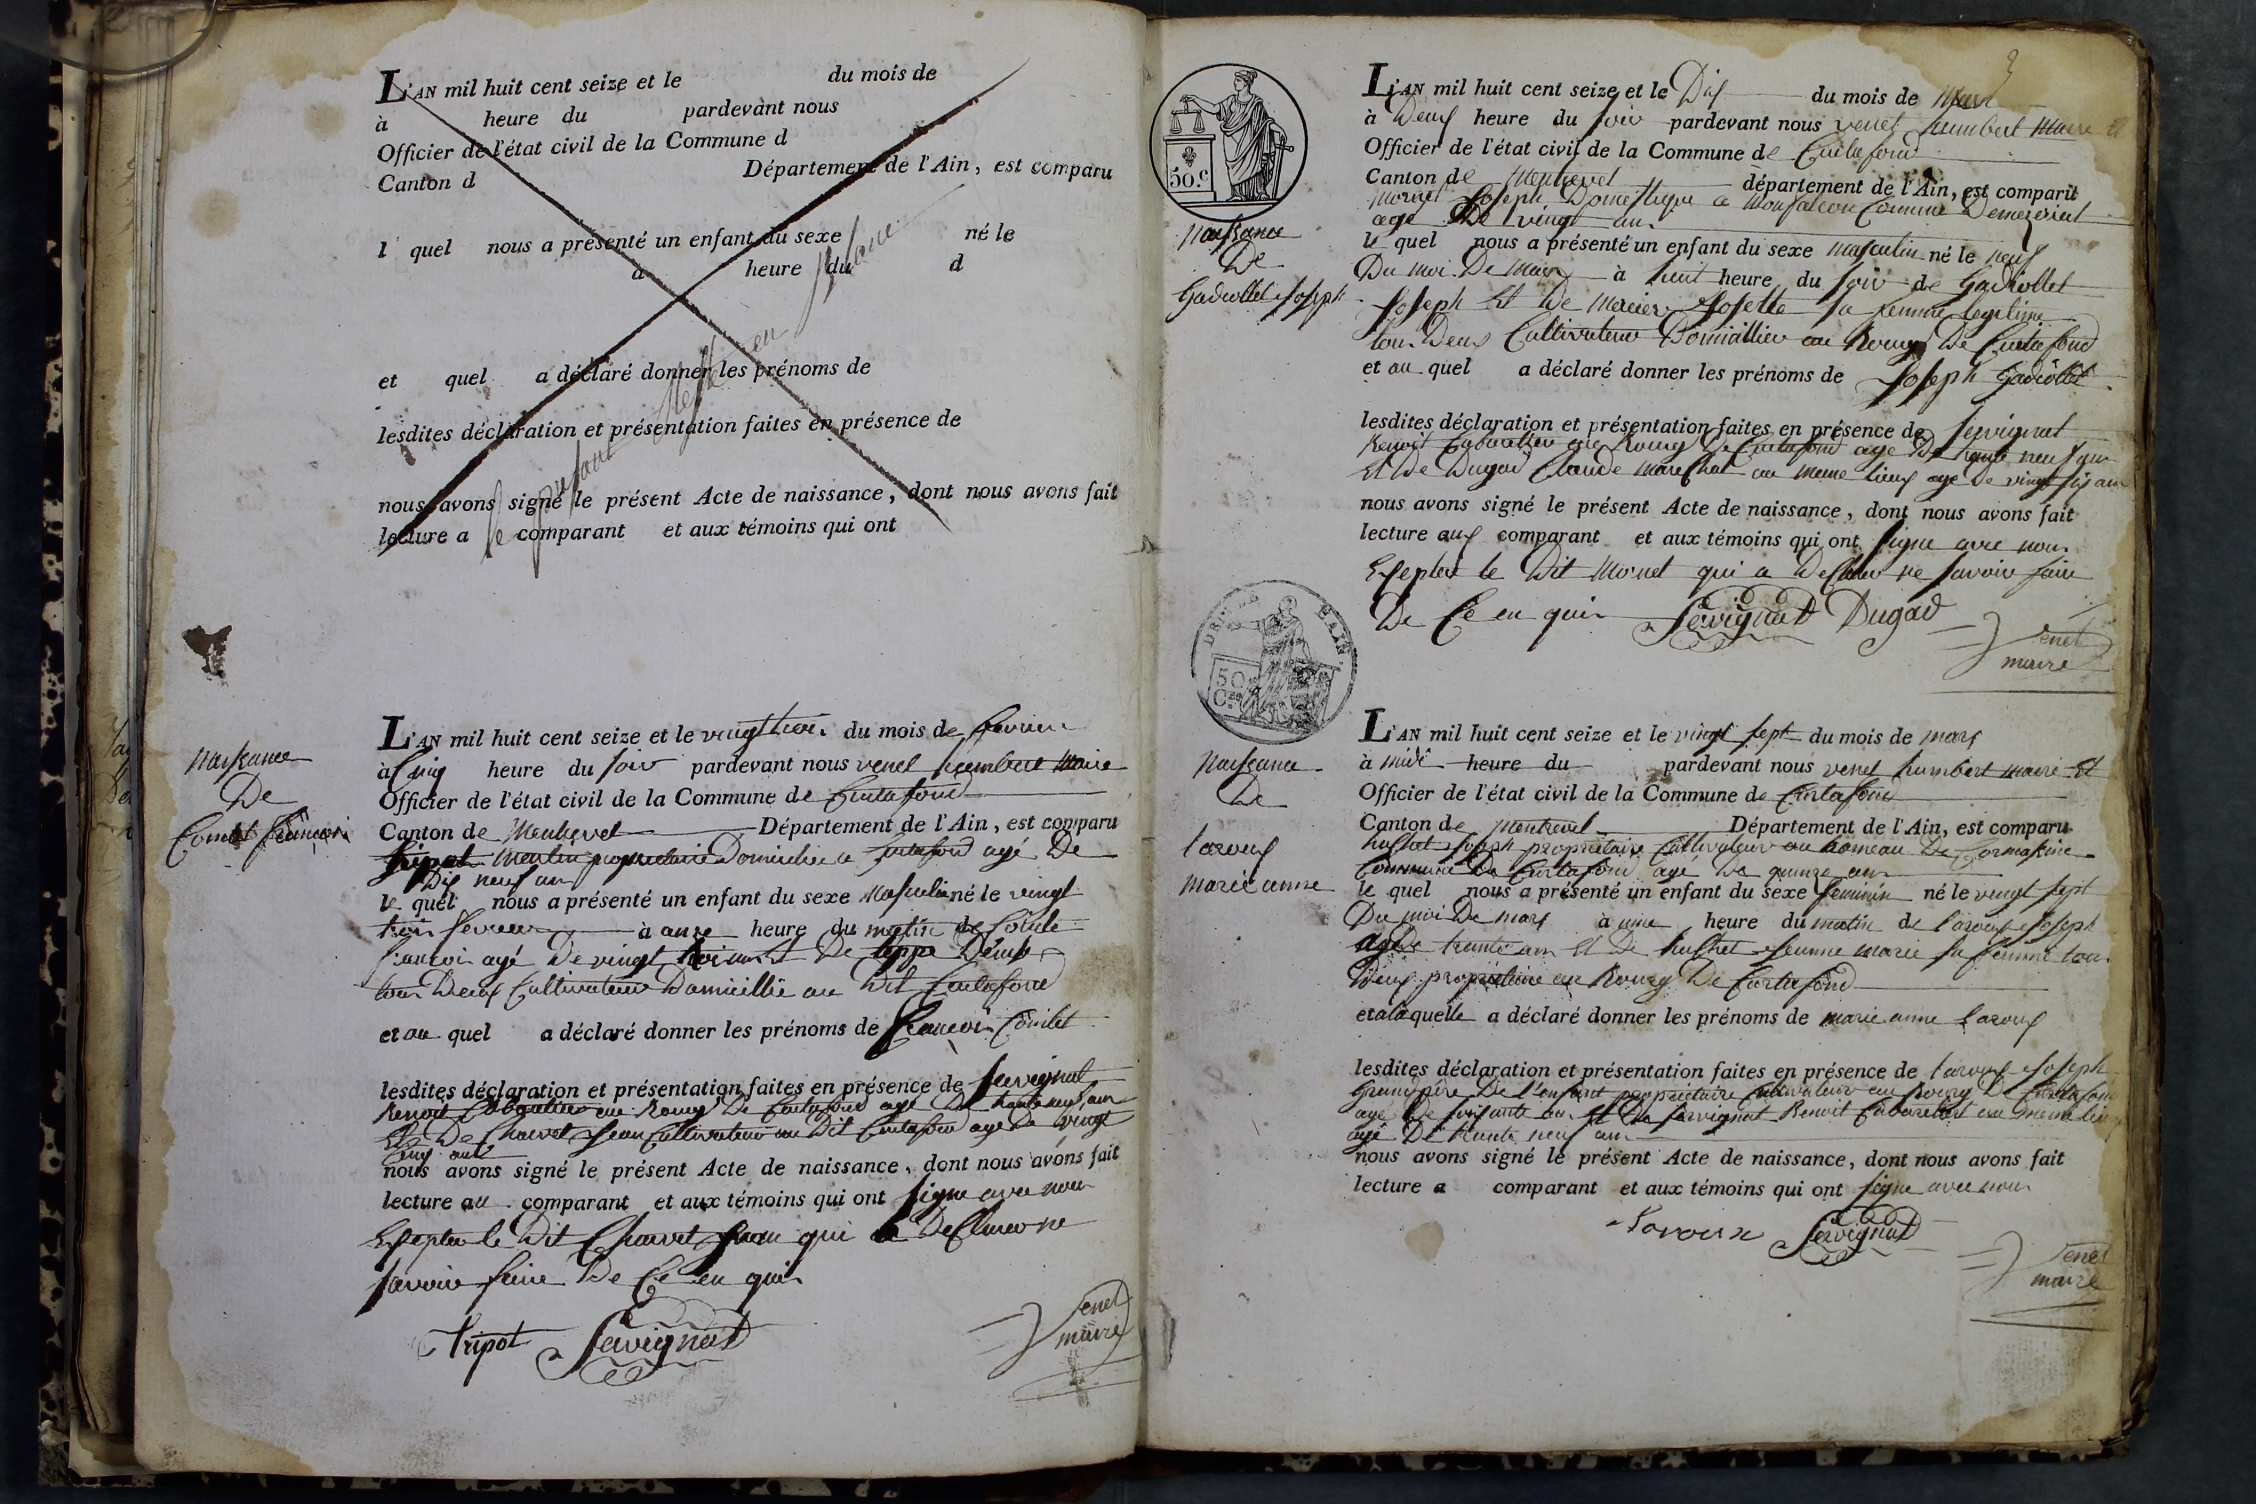 L'AN mil huit cent seize et le du mois de
à heure du pardevant nous
Officier de l'état civil de la Commune d
Canton d Département de l'Ain, est comparu
l quel nous a présenté un enfant du sexe né le
à heure du d
et quel a déclaré donner les prénoms de
lesdites déclaration et présentation faites en présence de
nous avons signé le présent Acte de naissance, dont nous avons fait
lecture a comparant et aux témoins qui ont
le presant en
naissance
De
Comtet françois
L'AN mil huit cent seize et le vingt trois du mois de fevrier
à Cinq heure du soir pardevant nous venet humbert maire
Officier de l'état civil de la Commune de Curtafond
Canton de Montrevel Département de l'Ain, est comparu
tripot propriétaire Domicilié a Curtafond agé De
Dix neuf an
le quel nous a présenté un enfant du sexe masculin né le vingt
trois fevrier à onze heure du matin de Comtet
francois agé De vingt trois an Et De
tous Deux Cultivateur Domicillié au Dit Curtafond
et au quel a déclaré donner les prénoms de francois Comtet
lesdites déclaration et présentation faites en présence de servignat
Benoit Cabaretier au Bourg De Curtafond agé De trante neuf an
Et De Chanet Jean Cultivateur au Dit Curtafond agé De vingt
nous avons signé le présent Acte de naissance, dont nous avons fait
lecture au comparant et aux témoins qui ont signe avec nous
Exepter le Dit Jean qui a Declarer ne
savoir faire De Ce en quis
Tripot Servignat
Venet
maire
3
50.c
naissance
De
Gadiollet Joseph
L'AN mil huit cent seize et le Dix du mois de mars
à Deux heure du soir pardevant nous venet humbert maire Et
Officier de l'état civil de la Commune de Curtafond
Canton de Montrevel département de l'Ain, est comparit
mornet Joseph Domestique a Monfalcon Commune De
agé De vingt an
le quel nous a présenté un enfant du sexe masculin né le neuf
Du moi De mars à huit heure du soir de Gadiollet
Joseph Et De mercier Josette sa femme legitime
tous Deux Cultivateur Domicillier au Bourg De Curtafond
et au quel a déclaré donner les prénoms de Joseph Gadiollet
lesdites déclaration et présentation faites en présence de servignat
Benoit Cabaretier au Bourg De Curtafond agé De trante neuf an
Et De Dugad Claude marechal au meme lieux agé De vingt six an
nous avons signé le présent Acte de naissance, dont nous avons fait
lecture aux comparant et aux témoins qui ont signe avec nous
Exepter le Dit Mornet qui a Declarer ne savoir faire
De Ce en quis Servignat Dugad
Venet
maire
50
Ces
naissance
De
Laroux
marie anne
L'AN mil huit cent seize et le vingt sept du mois de mars
à midi heure du pardevant nous venet humbert maire Et
Officier de l'état civil de la Commune de Curtafond
Canton de Montrevel Département de l'Ain, est comparu
Joseph propriétaire Cultivateur au hameau De
Commune De Curtafond agé De quinze an
le quel nous a présenté un enfant du sexe feminin né le vingt sept
Du moi De mars à une heure du matin de Laroux Joseph
agé De trante an Et De Jeanne marie sa femme tous
Deux propriétaire au Bourg De Curtafond
et a laquelle a déclaré donner les prénoms de marie anne Laroux
lesdites déclaration et présentation faites en présence de Laroux Joseph
Grand père De l'enfant propriétaire Cultivateur au Bourg De Curtafond
agé De soixante an Et De servignat Benoit Cabaretier au meme lieux
agé De trante neuf an
nous avons signé le présent Acte de naissance, dont nous avons fait
lecture a comparant et aux témoins qui ont signe avec nous
Laroux Servignat
Venet
maire